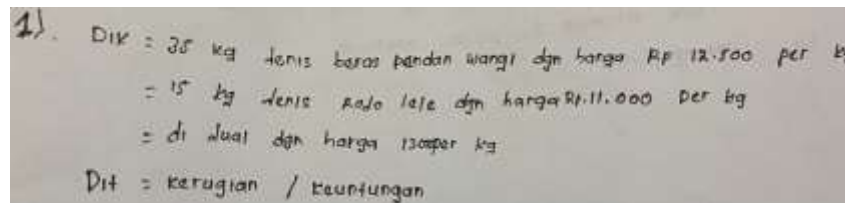 1). Dik = 35 kg Jenis beras pandan wangi dgn harga Rp 12.500 per k
= 15 kg Jenis Rojo lele dgn harga Rp.11.000 Per kg
= di Jual dgn harga 1300per kg
Dit = kerugian / keuntungan